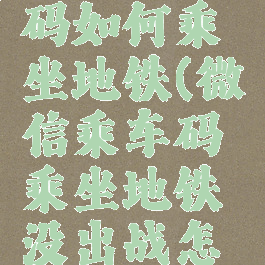 码如何乘
坐地铁(微
信乘车码
乘坐地铁
没出战怎